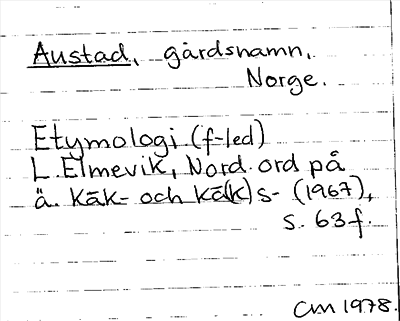 Austad, gårdsnamn,
Norge.
Etymologi (f-led)
L. Elmevik, Nord. ord på
ä. kāk- och kā(k)s- (1967),
s. 63 f.
CM 1978.